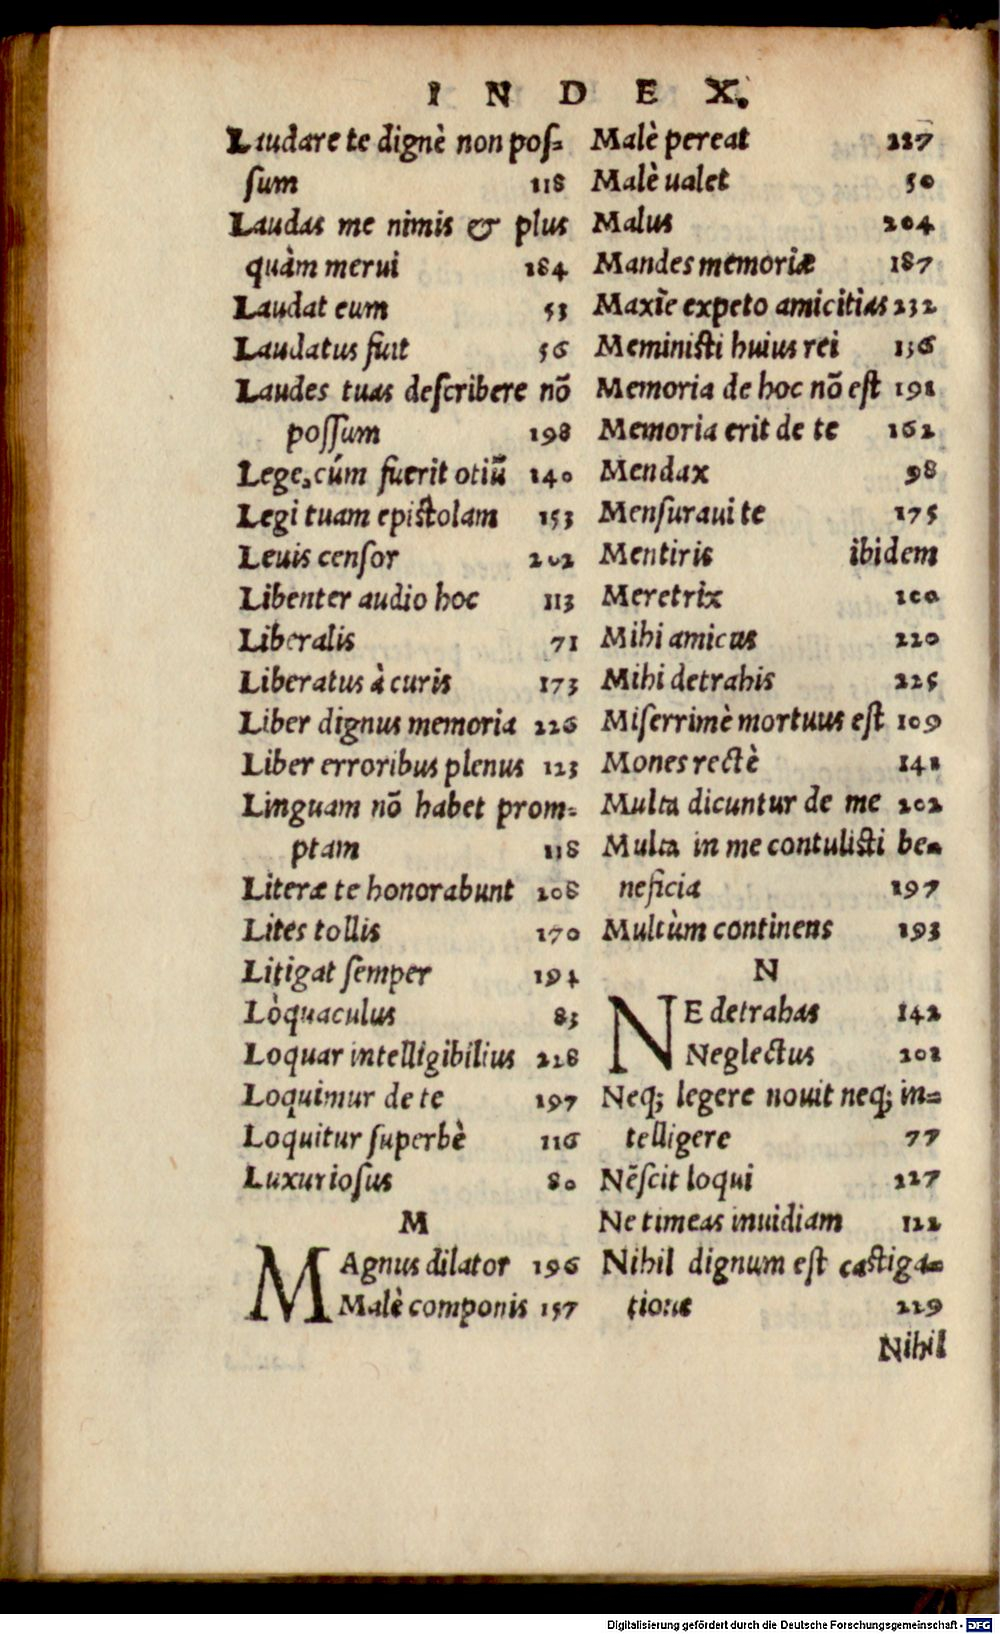 INDEX.
Laudare te dignè non pos-
sum 118
Laudas me nimis & plus
quàm merui 184
Laudat eum 53
Laudatus fuit 56
Laudes tuas describere nõ
possum 198
Lege, cúm fuerit otiũ 140
Legi tuam epistolam 153
Leuis censor 202
Libenter audio hoc 113
Liberalis 71
Liberatus à curis 173
Liber dignus memoria 226
Liber erroribus plenus 123
Linguam nõ habet prom-
ptam 118
Literæ te honorabunt 208
Lites tollis 170
Litigat semper 194
Lòquaculus 83
Loquar intelligibilius 228
Loquimur de te 197
Loquitur superbè 116
Luxuriosus 80
M
MAgnus dilator 196
Malè componis 157
Malè pereat 227
Malè ualet 50
Malus 204
Mandes memoriæ 187
Maxĩe expeto amicitias 232
Meministi huius rei 136
Memoria de hoc nõ est 191
Memoria erit de te 162
Mendax 98
Mensuraui te 175
Mentiris ibidem
Meretrix 100
Mihi amicus 220
Mihi detrahis 225
Miserrimè mortuus est 109
Mones rectè 141
Multa dicuntur de me 202
Multa in me contulisti be-
neficia 197
Multùm continens 193
N
NE detrahas 142
Neglectus 202
Neq; legere nouit neq; in-
telligere 77
Nẽscit loqui 127
Ne timeas inuidiam 122
Nihil dignum est castiga-
tione 229
Nihil
Digitalisierung gefördert durch die Deutsche Forschungsgemeinschaft - DFG